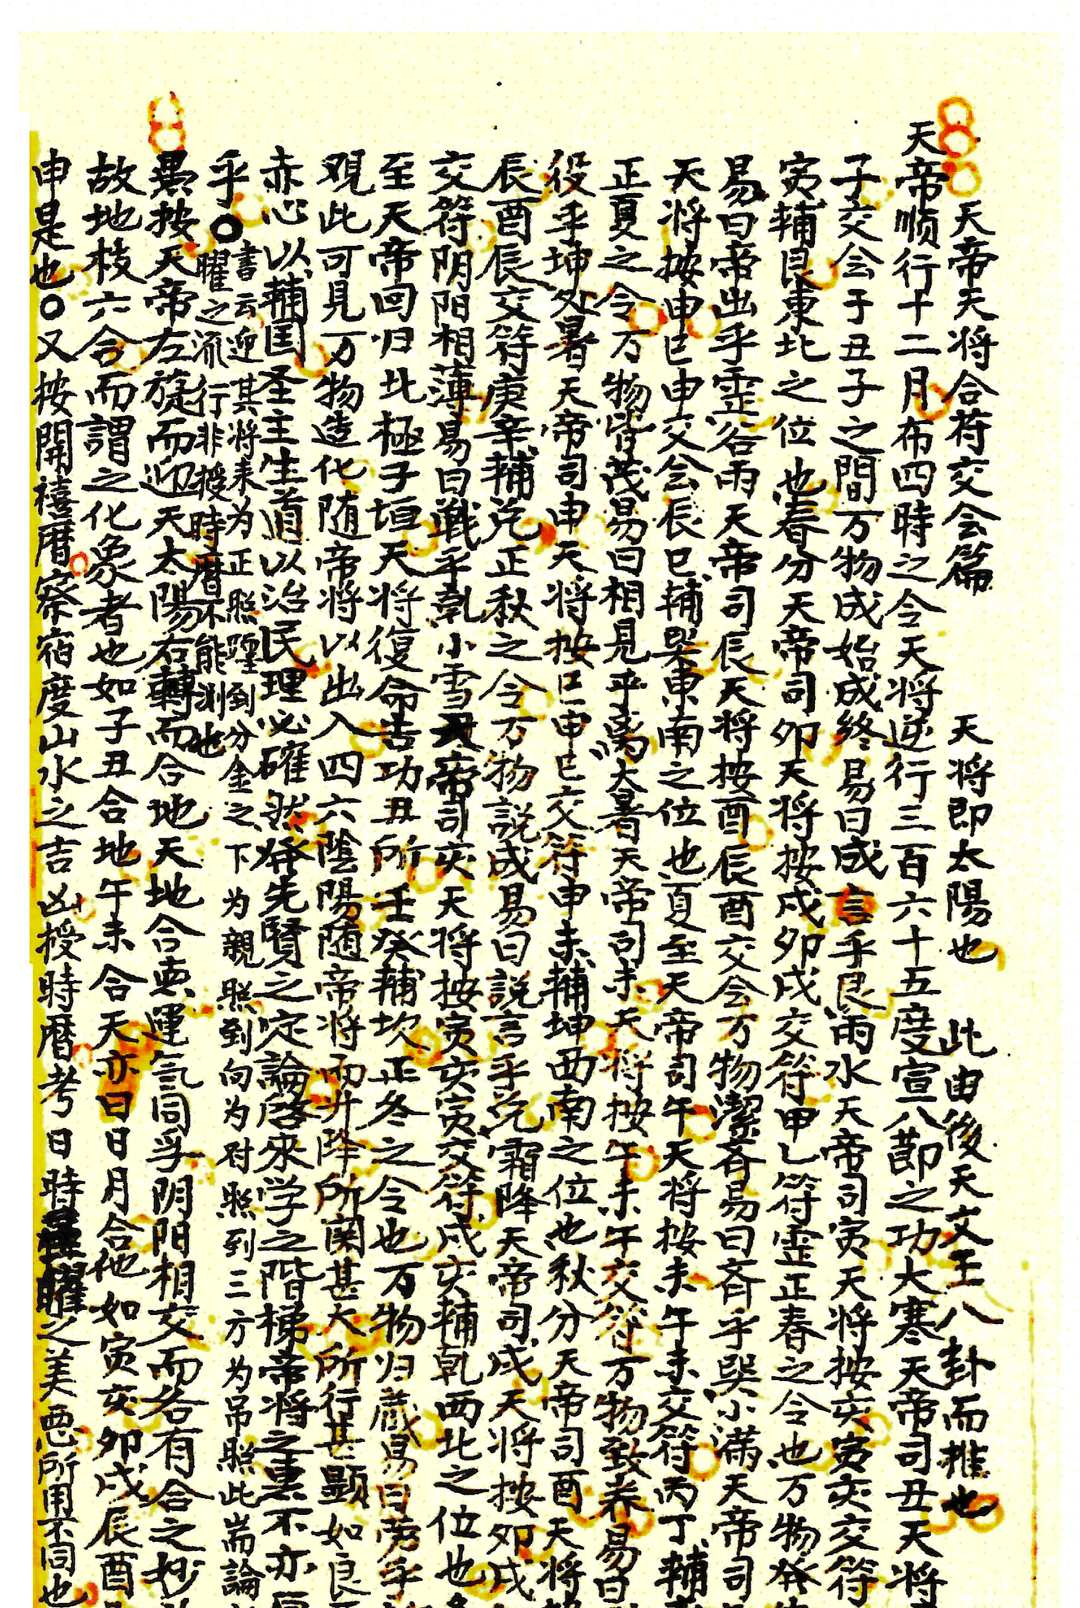 天帝天将合符交会篇 天将即太陽也 此由後天文王八卦而推也
天帝顺行十二月布四時之令天将逆行三百六十五度宣八節之功大寒天帝司丑天将
子交会于丑子之間万物成始成終易曰成言乎艮雨水天帝司寅天将按亥寅亥交符
寅輔艮東北之位也春分天帝司卯天将按戌卯戌交符甲乙符霊正春之令也万物發
易曰帝出乎霊谷雨天帝司辰天将按酉辰酉交会万物潔斉易曰斉乎巽小满天帝司
天将按申巳申交会辰巳輔巽東南之位也夏至天帝司午天将按未午未交符丙丁輔
正夏之令万物皆茂易曰相見乎离大暑天帝司未天将按午未午交符万物致养易曰
役乎坤处暑天帝司申天将按巳申巳交符申未輔坤西南之位也秋分天帝司酉天将
辰酉辰交符庚辛輔兑正秋之令万物説成易曰説言乎兑霜降天帝司戌天将按卯戌
交符阴阳相薄易曰戦乎乾小雪天帝司亥天将按寅亥寅交符戌亥輔乾西北之位也
至天帝回归北極子垣天将復命告功丑所壬癸輔坎正冬之令也万物归蔵易曰劳乎
观此可見万物造化随帝将以出入四六陰陽随帝将而升降所関甚大所行甚顯如良
赤心以輔国圣主生道以治民理必確然發先賢之定論啓来学之階梯帝将之重不亦
乎〇書云迎其将来为正照躔到分金之下为親照到向为对照到三方为吊照此耑論
曜之流行非授時暦不能測也
愚按天帝左旋而迎天太陽右轉而合地天地合德運氣同孚阴阳相交而各有合之妙
故地枝六合而謂之化象者也如子丑合地午未合天亦曰日月合他如寅亥卯戌辰酉
申是也〇又按開禧暦察宿度山水之吉凶授時暦考日時曜之美悪所用不同也